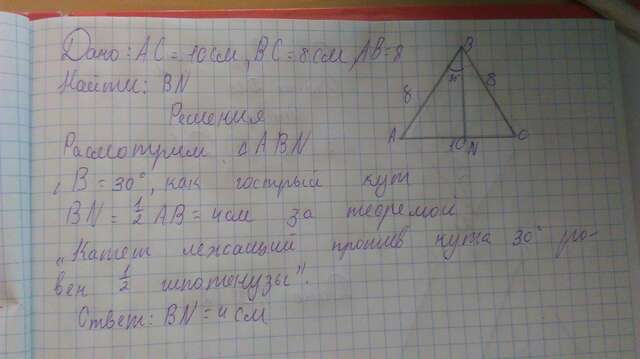 Дано: AC = 10 см, BC = 8 см, AB = 8
Найти: BN
Решения
Расмотрим △ ABN
∠B = 30°, как гострый кут
BN = 1/2 AB = 4 см за теоремой
„Катет лежащий против кута 30° ро-
вен 1/2 гипотенузы".
Ответ: BN = 4 см
B
30°
8
8
A
10
N
C